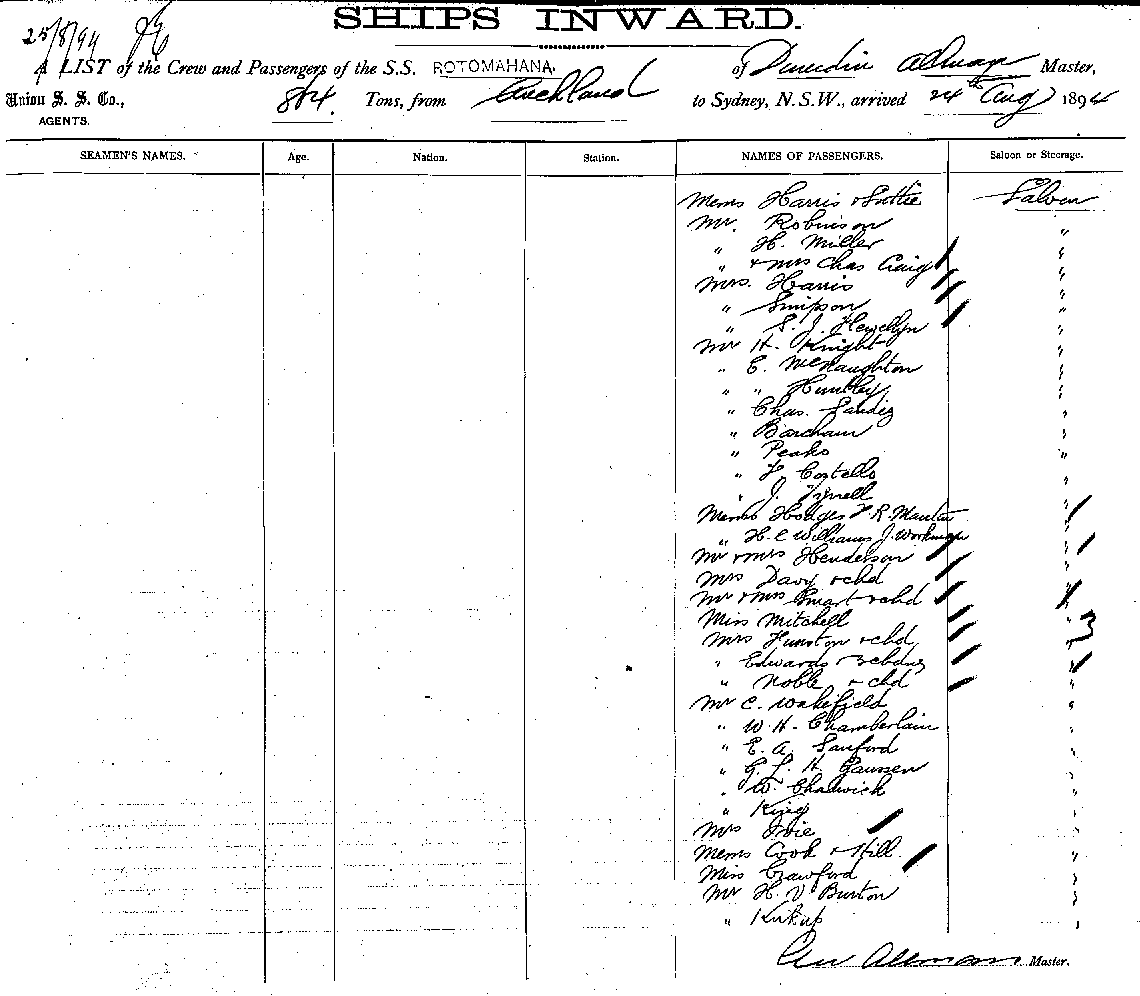 SHIPS INWARD.
25/8/94
A LIST of the Crew and Passengers of the S.S. ROTOMAHANA. of Dunedin Allman Master,
Union S. S. Co., 864 Tons, from Auckland to Sydney, N.S.W., arrived 24th Aug 1894
AGENTS.
SEAMEN'S NAMES. Age. Nation. Station. NAMES OF PASSENGERS. Saloon or Steerage.
Messrs Harris & Saloon
Mr. Robinson "
" H. Miller "
" & Mrs Chas Craig "
Mrs. Harris "
" Simpson "
" S. J. Llewellyn "
Mr H. Knight "
" E. McNaughton "
" " Huntley "
" Chas. "
" Barcham "
" Peake "
" Costello "
" J. Tyrrell "
Messrs Hodges & R. "
" H. C Williams J. Workman "
Mr & Mrs Henderson "
Mrs Davy & chd "
Mr & Mrs Smart & chd "
Miss Mitchell "
Mrs Funston & chd "
" Edwards "
" Noble & chd "
Mr C. Wakefield "
" W. H. Chamberlain "
" E. A. Sanford "
" G. L. H. Gaussen "
" W. Chadwick "
" King "
Mrs "
Messrs Cook & Hill "
Miss Crawford "
Mr H. V Burton "
" Kirkup "
Allman Master.